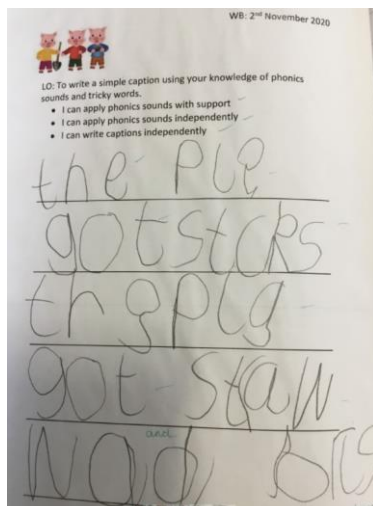 WB: 2nd November 2020
LO: To write a simple caption using your knowledge of phonics
sounds and tricky words.
• I can apply phonics sounds with support
• I can apply phonics sounds independently
• I can write captions independently
the Pie
got stcks
th g pig
got staw
and
wod bris